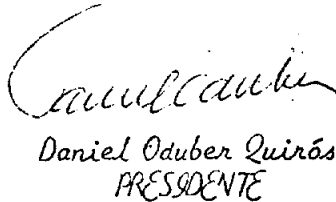 Daniel Oduber Quirós
PRESIDENTE